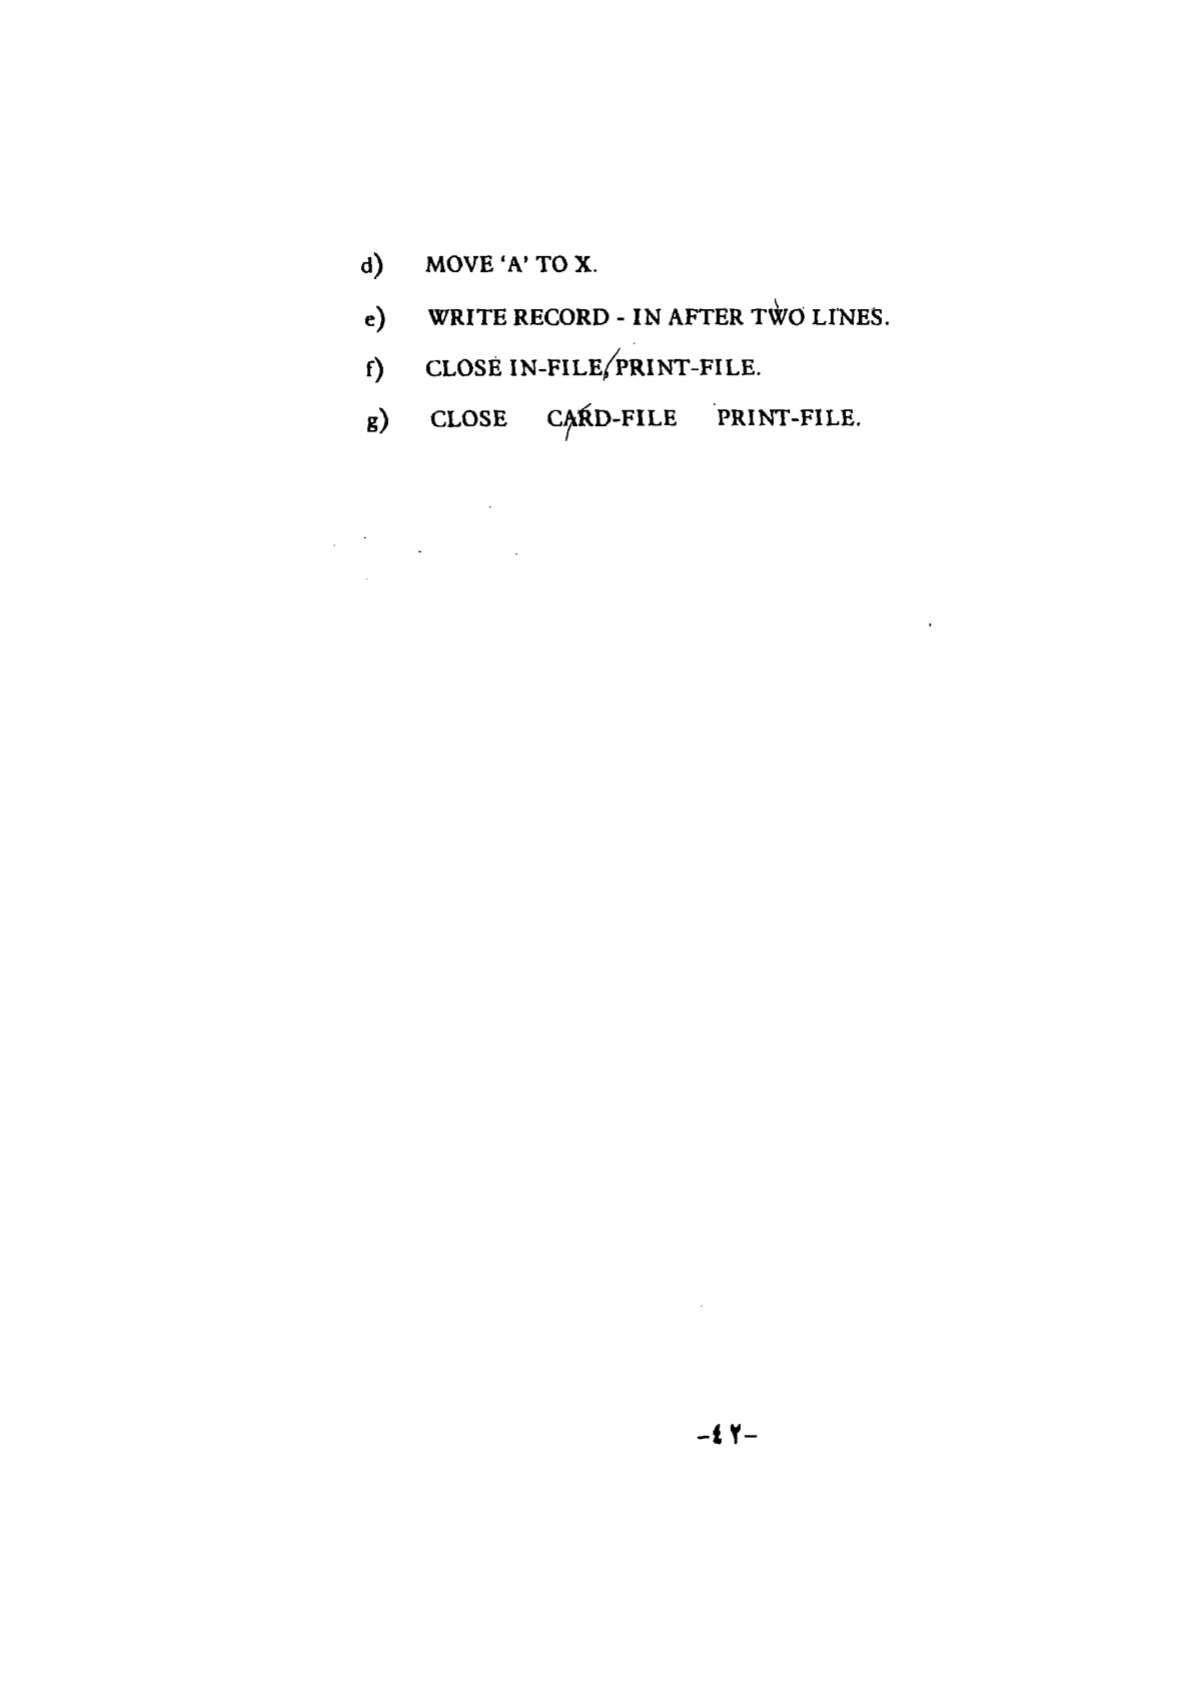 d) MOVE ‘A’ TO X.
e) WRITE RECORD - IN AFTER TWO LINES.
f) CLOSE IN-FILE, PRINT-FILE.
g) CLOSE CARD-FILE PRINT-FILE.
-٤٢-